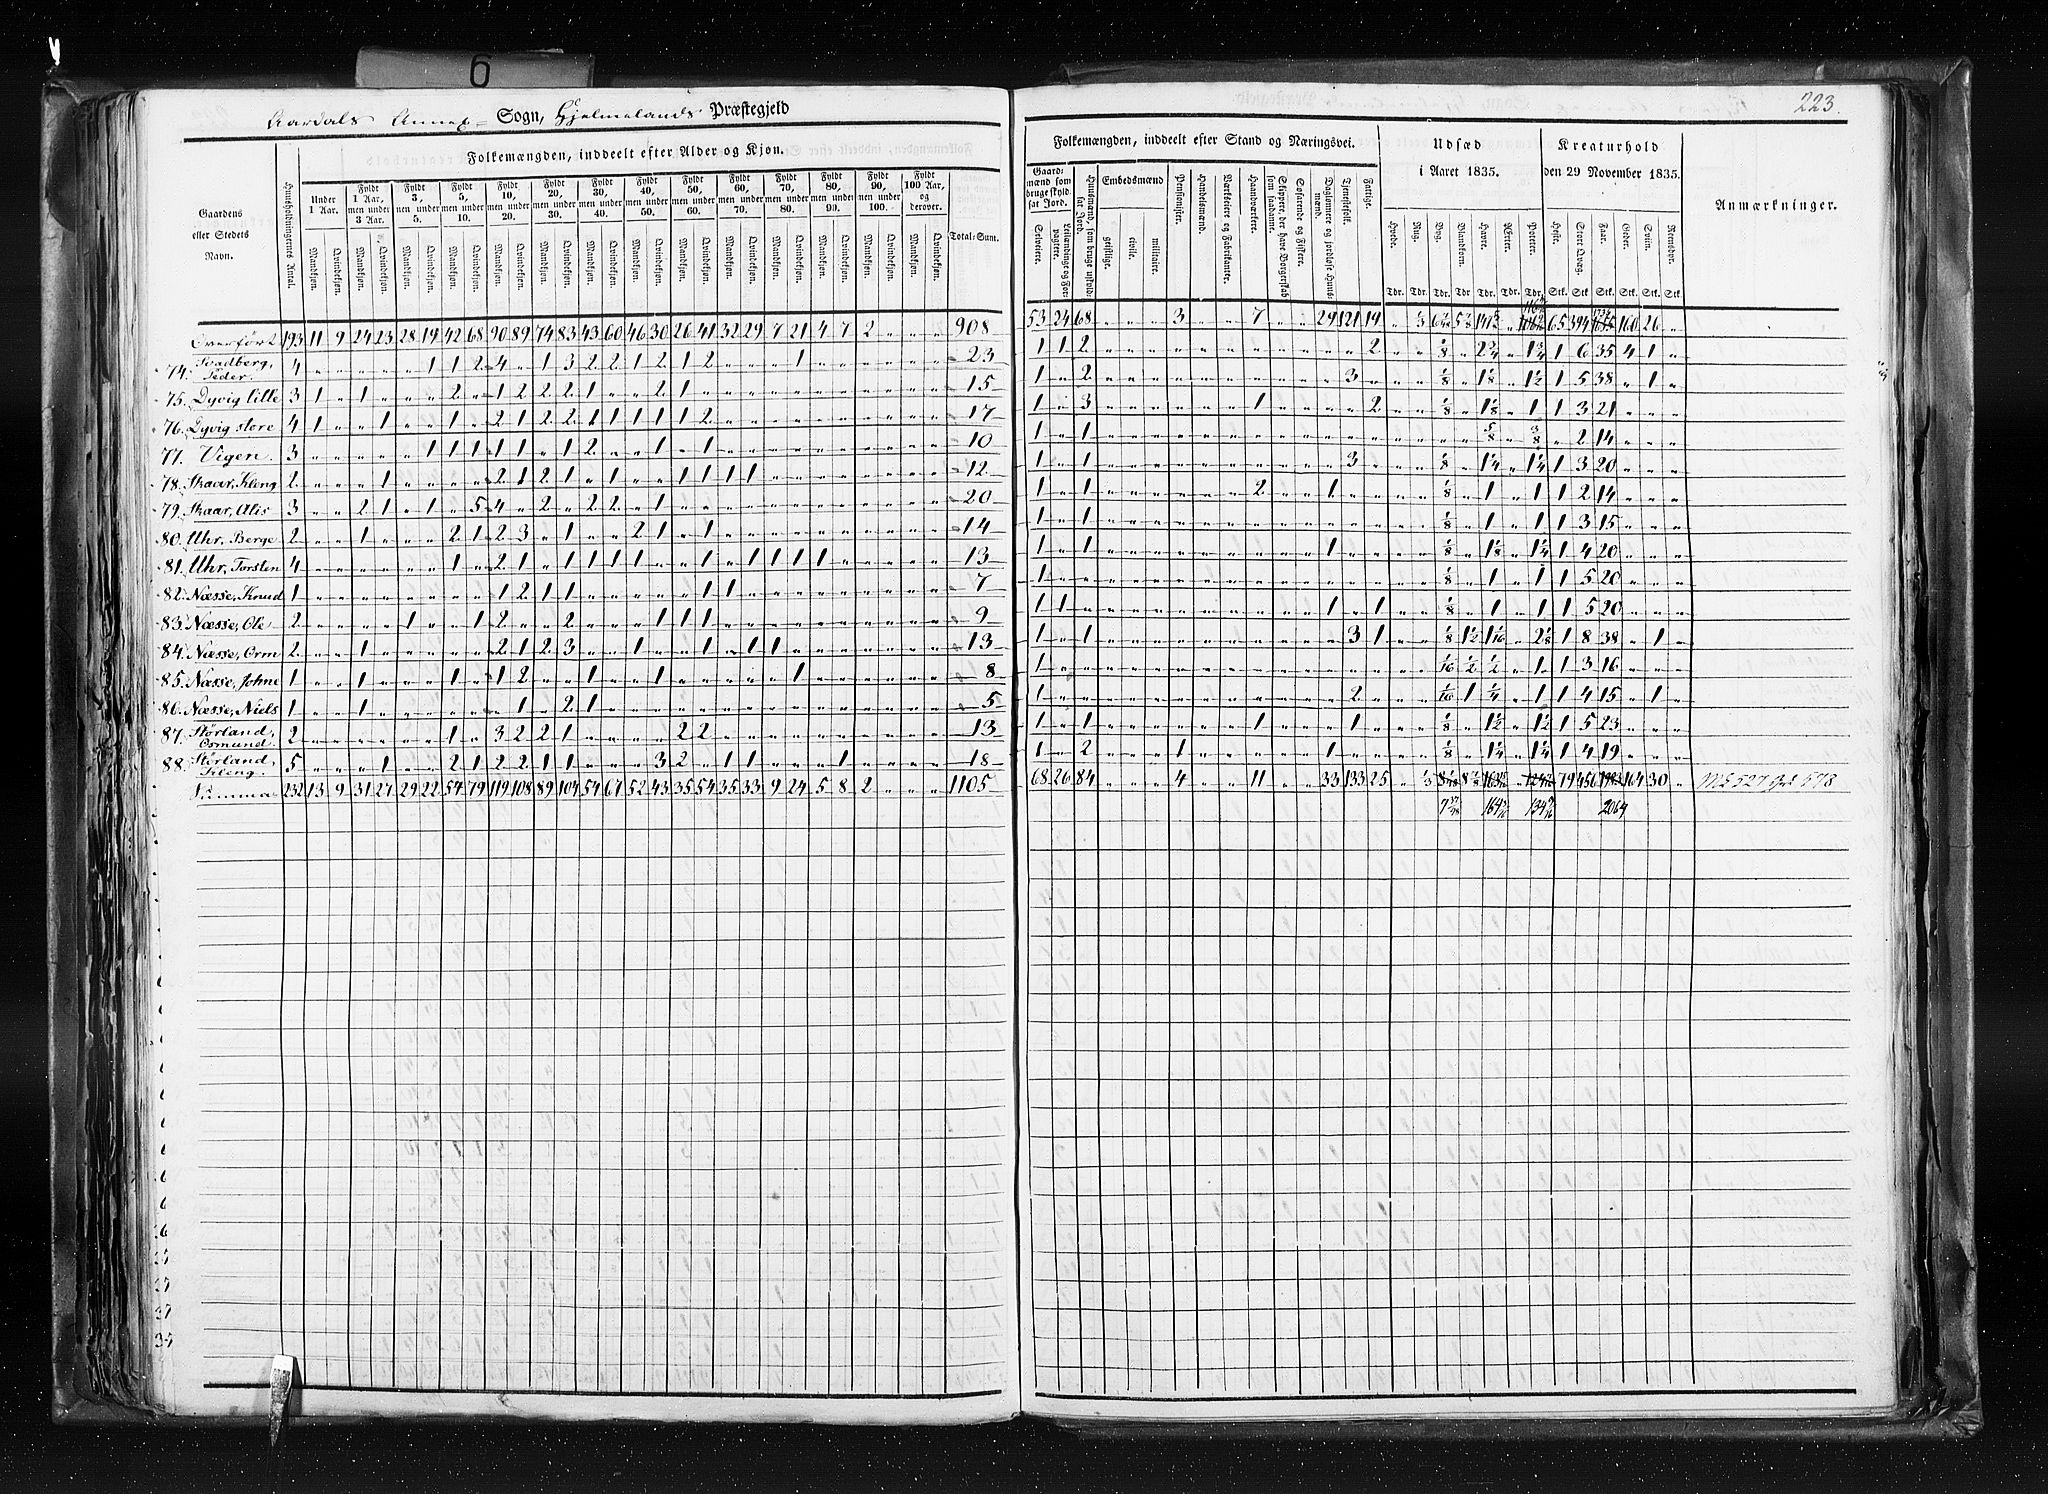 6
Aardals Annex Sogn, Hjelmelands Præstegjeld
223.
Gaardens eller Stedets Navn.
Huusholdningernes Antal.
Folkemængden, inddeelt efter Alder og Kjøn.
Under 1 Aar.
Fyldt 1 Aar, men under 3 Aar.
Fyldt 3, men under 5.
Fyldt 5, men under 10.
Fyldt 10, men under 20.
Fyldt 20 men under 30.
Fyldt 30, men under 40.
Fyldt 40, men under 50.
Fyldt 50, men under 60.
Fyldt 60, men under 70.
Fyldt 70, men under 80.
Fyldt 80, men under 90.
Fyldt 90, men under 100.
Fyldt 100 Aar, og derover.
Mandkjøn. Qvindekjøn.
Total-Sum.
Folkemængden, inddeelt efter Stand og Næringsvei.
Gaardmænd som bruge skyldsat Jord.
Selveiere.
Leilændinge og Forpagtere.
Huusmænd, som bruge uskyldsat Jord.
Embedsmænd
geistlige. civile. militaire.
Pensionister.
Handelsmænd.
Værkeiere og Fabrikanter.
Haandværkere.
Skippere, der have Borgerskab som saadanne.
Søfarende og Fiskere.
Daglønnere og jordløse Huusmænd.
Tjenestefolk.
Fattige.
Udsæd i Aaret 1835.
Hvede. Rug. Byg. Blandkorn. Havre. Erter. Poteter.
Tdr. Tdr. Tdr. Tdr. Tdr. Tdr. Tdr.
Kreaturhold den 29 November 1835.
Heste. Stort Qvæg. Faar. Geder. Sviin. Rensdyr.
Stk. Stk. Stk. Stk. Stk. Stk.
Anmærkninger.
Overført 193 11 9 24 23 28 19 42 68 90 89 74 83 43 60 46 30 26 41 32 29 7 21 4 7 2 " " " 908 53 24 68 " " " 3 " " 7 " " 29 121 19 65 394 160 26 "
74. Svadberg, Peder. 4 " " " " " 1 1 2 4 " 1 3 2 2 1 2 1 2 " " " 1 " " " " " " 23 1 1 2 2 1/8 2 3/4 1 3/4 1 6 35 4 1 "
75. Dyvig lille 3 1 " 1 " " " 2 " 1 2 2 2 1 " " 2 1 15 1 " 2 3 1/8 1 1/8 1 1/2 1 5 38 " 1 "
76. Dyvig store 4 1 " " 1 " " 1 " 2 1 2 2 1 1 1 1 1 2 17 1 " 3 1 2 1/8 1 1/8 1 1 3 21
77. Vigen. 3 " " " " " 1 1 1 1 1 " 1 2 " " 1 " 1 10 1 " 1 5/8 3/8 " 2 14
78. Skaar, Kleng 2 " " " 1 " " " " 2 1 2 1 " 1 " " 1 1 1 1 12 1 " 1 3 1/8 1 1/4 1 1/4 1 3 20
79. Skaar, Alis 3 " " 2 1 " 1 " 5 4 " 2 " 2 2 " 1 20 1 " 1 2 1 1/8 1 1 1 2 14
80. Uhr, Berge 2 " " 1 " " " 2 1 2 3 " 1 " " 2 1 " 1 14 1 " 1 1/8 1 1 1 3 15
81. Uhr, Torsten 4 " " " " " " 1 " 2 1 " 1 1 1 1 " 1 1 1 1 1 13 1 " 1 1 1/8 1 1/8 1 1/4 1 4 20
82. Næsse, Knud 1 1 2 1 1 1 1 7 1 1/8 1 1 1 5 20
83. Næsse, Ole 2 " " " " 1 " " 1 2 " " 2 " " " 1 1 1 9 1 1 1 1 1/8 1 1 1 5 20
84. Næsse, Orm 2 " " 1 " " " " " 2 1 2 3 " " 1 " " 1 " 1 1 13 1 " 1 3 1 1/8 1 1/2 1 1/16 2 1/8 1 8 38 " 1 "
85. Næsse, Johne 1 " " 1 " " " 1 " 1 2 " " 1 " " 1 1 8 1 1/16 1/2 1/2 1 1 3 16
86. Næsse, Niels 1 " " 1 " " " " " " 1 " 2 1 5 1 2 1/16 1 1/4 1 1 4 15 " 1 "
87. Størland, Osmund. 2 " " " " " " 1 " 3 2 2 1 " " " " 2 2 13 1 " 1 1 1 1/8 1 1/2 1 1/2 1 5 23
88. Størland, Kleng. 5 " " " 1 " " 2 1 2 2 1 1 " " " 3 2 " 1 1 " " " 1 18 1 " 2 1 1 1/8 1 1/4 1 1/4 1 4 19
Summa 232 13 9 31 27 29 22 54 79 119 108 89 104 54 67 52 43 35 54 35 33 9 24 5 8 2 " " " 1105 68 26 84 " " " 4 " " 11 " " 33 133 25 79 456 164 30 " Mk 527 Qvk 578
2064